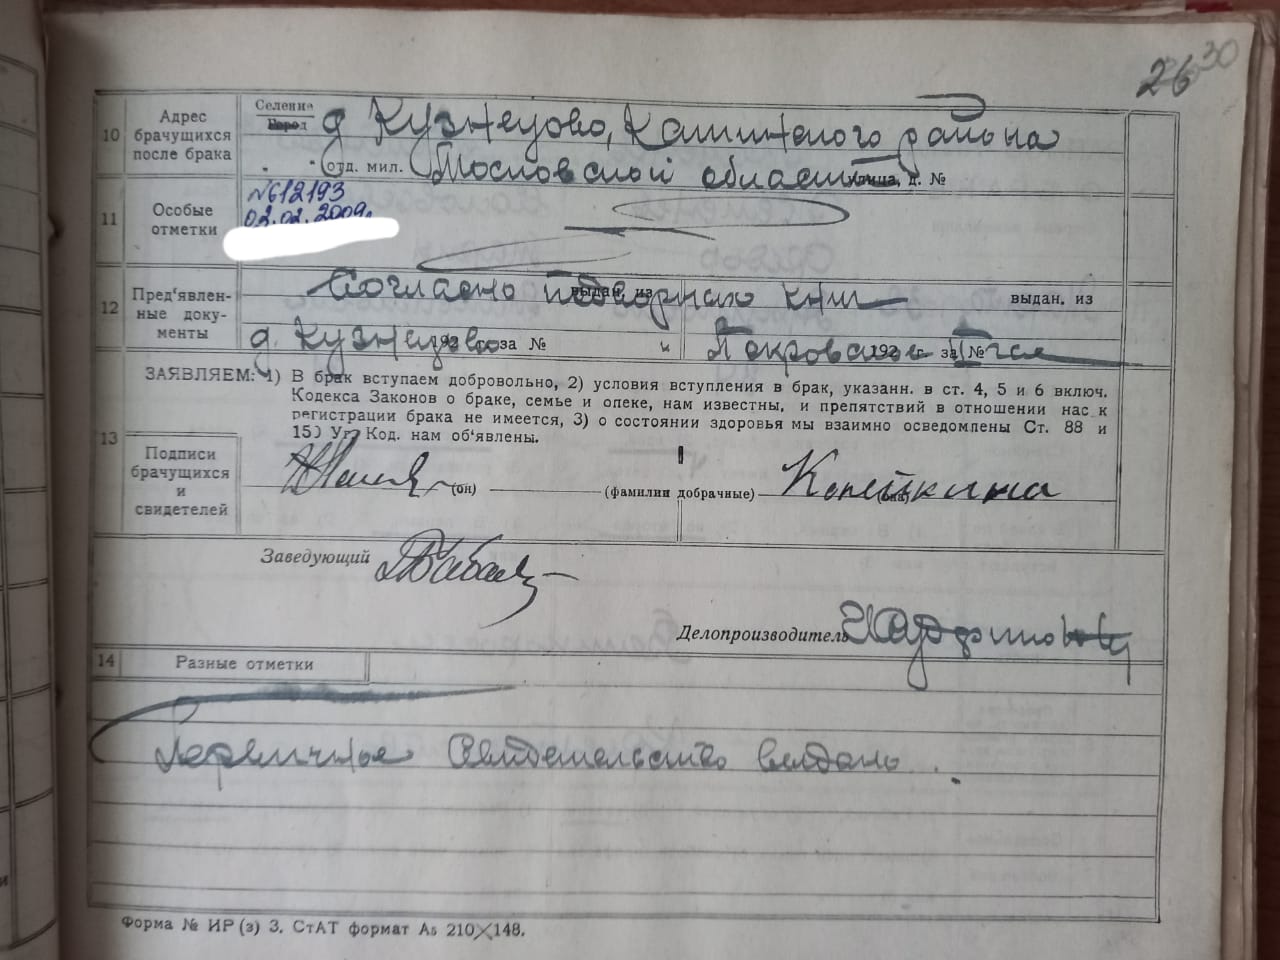 26 30
10 Адрес брачущихся после брака
Селение
Город д Кузнецово, Кашинского района
" " отд. мил. Московской области улица, д. №
11 Особые отметки
№612193
02.02.2009г.
12 Пред'явленные документы
Согласно подворных книг выдан. из выдан. из
д. Кузнецово 192 г. за № и Покровское 192 г. за №
ЗАЯВЛЯЕМ: 1) В брак вступаем добровольно, 2) условия вступления в брак, указанн. в ст. 4, 5 и 6 включ.
Кодекса Законов о браке, семье и опеке, нам известны, и препятствий в отношении нас к
регистрации брака не имеется, 3) о состоянии здоровья мы взаимно осведомлены Ст. 88 и
15) Уг. Код. нам об'явлены.
13
Подписи брачущихся и свидетелей
(он) (фамилии добрачные) Копейкина (она)
Заведующий
Делопроизводитель
14 Разные отметки
Первичное свидетельство выдано.
Форма № ИР (з) 3. СтАТ формат А5 210×148.